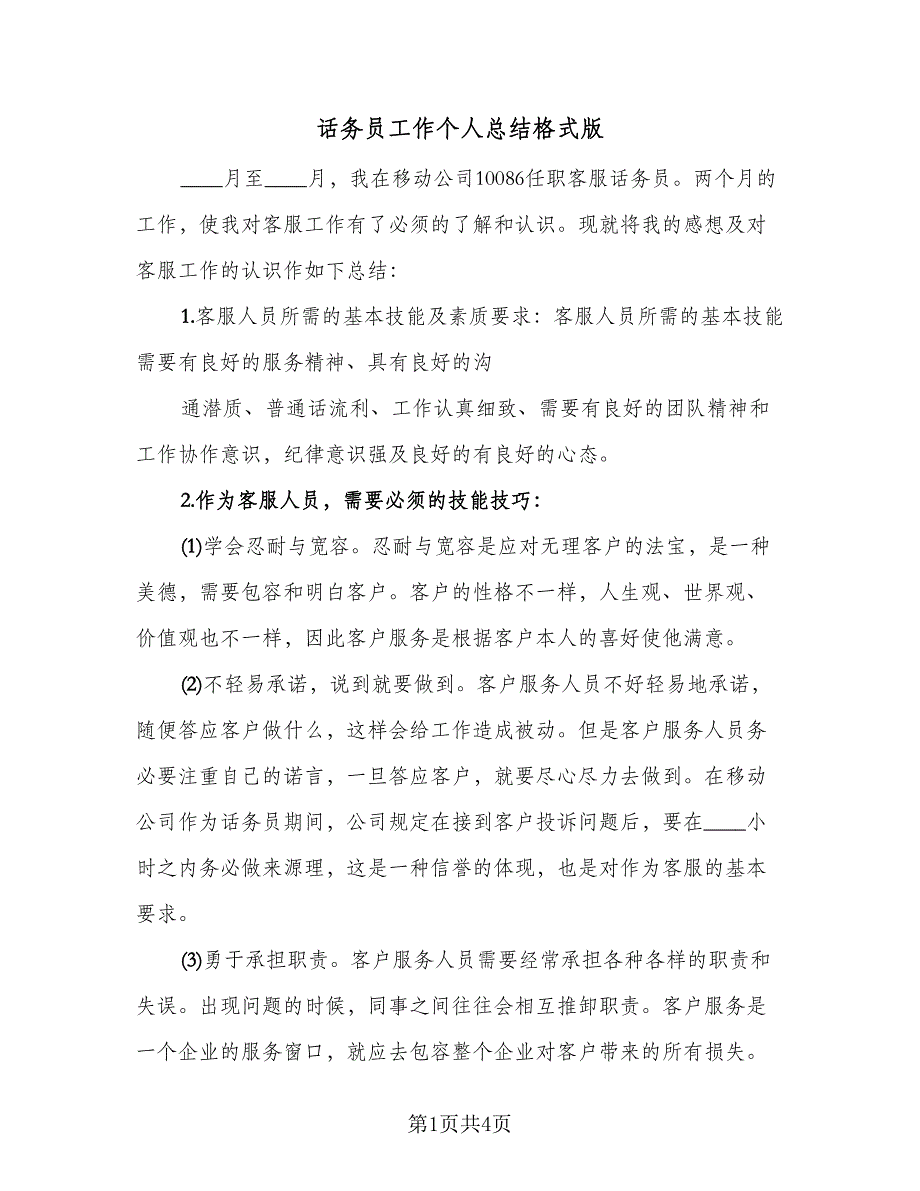 话务员工作个人总结格式版
____月至____月，我在移动公司10086任职客服话务员。两个月的
工作，使我对客服工作有了必须的了解和认识。现就将我的感想及对
客服工作的认识作如下总结：
1.客服人员所需的基本技能及素质要求：客服人员所需的基本技能
需要有良好的服务精神、具有良好的沟
通潜质、普通话流利、工作认真细致、需要有良好的团队精神和
工作协作意识，纪律意识强及良好的有良好的心态。
2.作为客服人员，需要必须的技能技巧：
(1)学会忍耐与宽容。忍耐与宽容是应对无理客户的法宝，是一种
美德，需要包容和明白客户。客户的性格不一样，人生观、世界观、
价值观也不一样，因此客户服务是根据客户本人的喜好使他满意。
(2)不轻易承诺，说到就要做到。客户服务人员不好轻易地承诺，
随便答应客户做什么，这样会给工作造成被动。但是客户服务人员务
必要注重自己的诺言，一旦答应客户，就要尽心尽力去做到。在移动
公司作为话务员期间，公司规定在接到客户投诉问题后，要在____小
时之内务必做来源理，这是一种信誉的体现，也是对作为客服的基本
要求。
(3)勇于承担职责。客户服务人员需要经常承担各种各样的职责和
失误。出现问题的时候，同事之间往往会相互推卸职责。客户服务是
一个企业的服务窗口，就应去包容整个企业对客户带来的所有损失。
第1页共4页